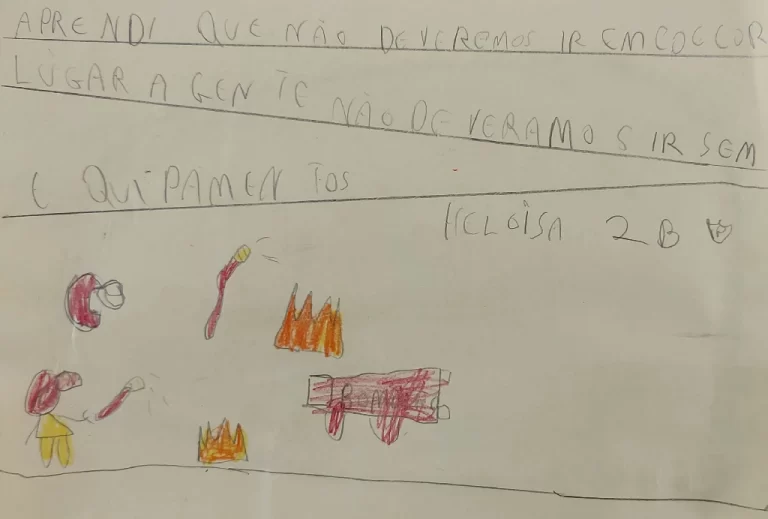 APRENDI QUE NÃO DEVEREMOS IR EMCOCCOR
LÚGAR A GENTE NÃO DEVERAMOS IR SEM
EQUIPAMENTOS
HELOÍSA 2 B
BOM